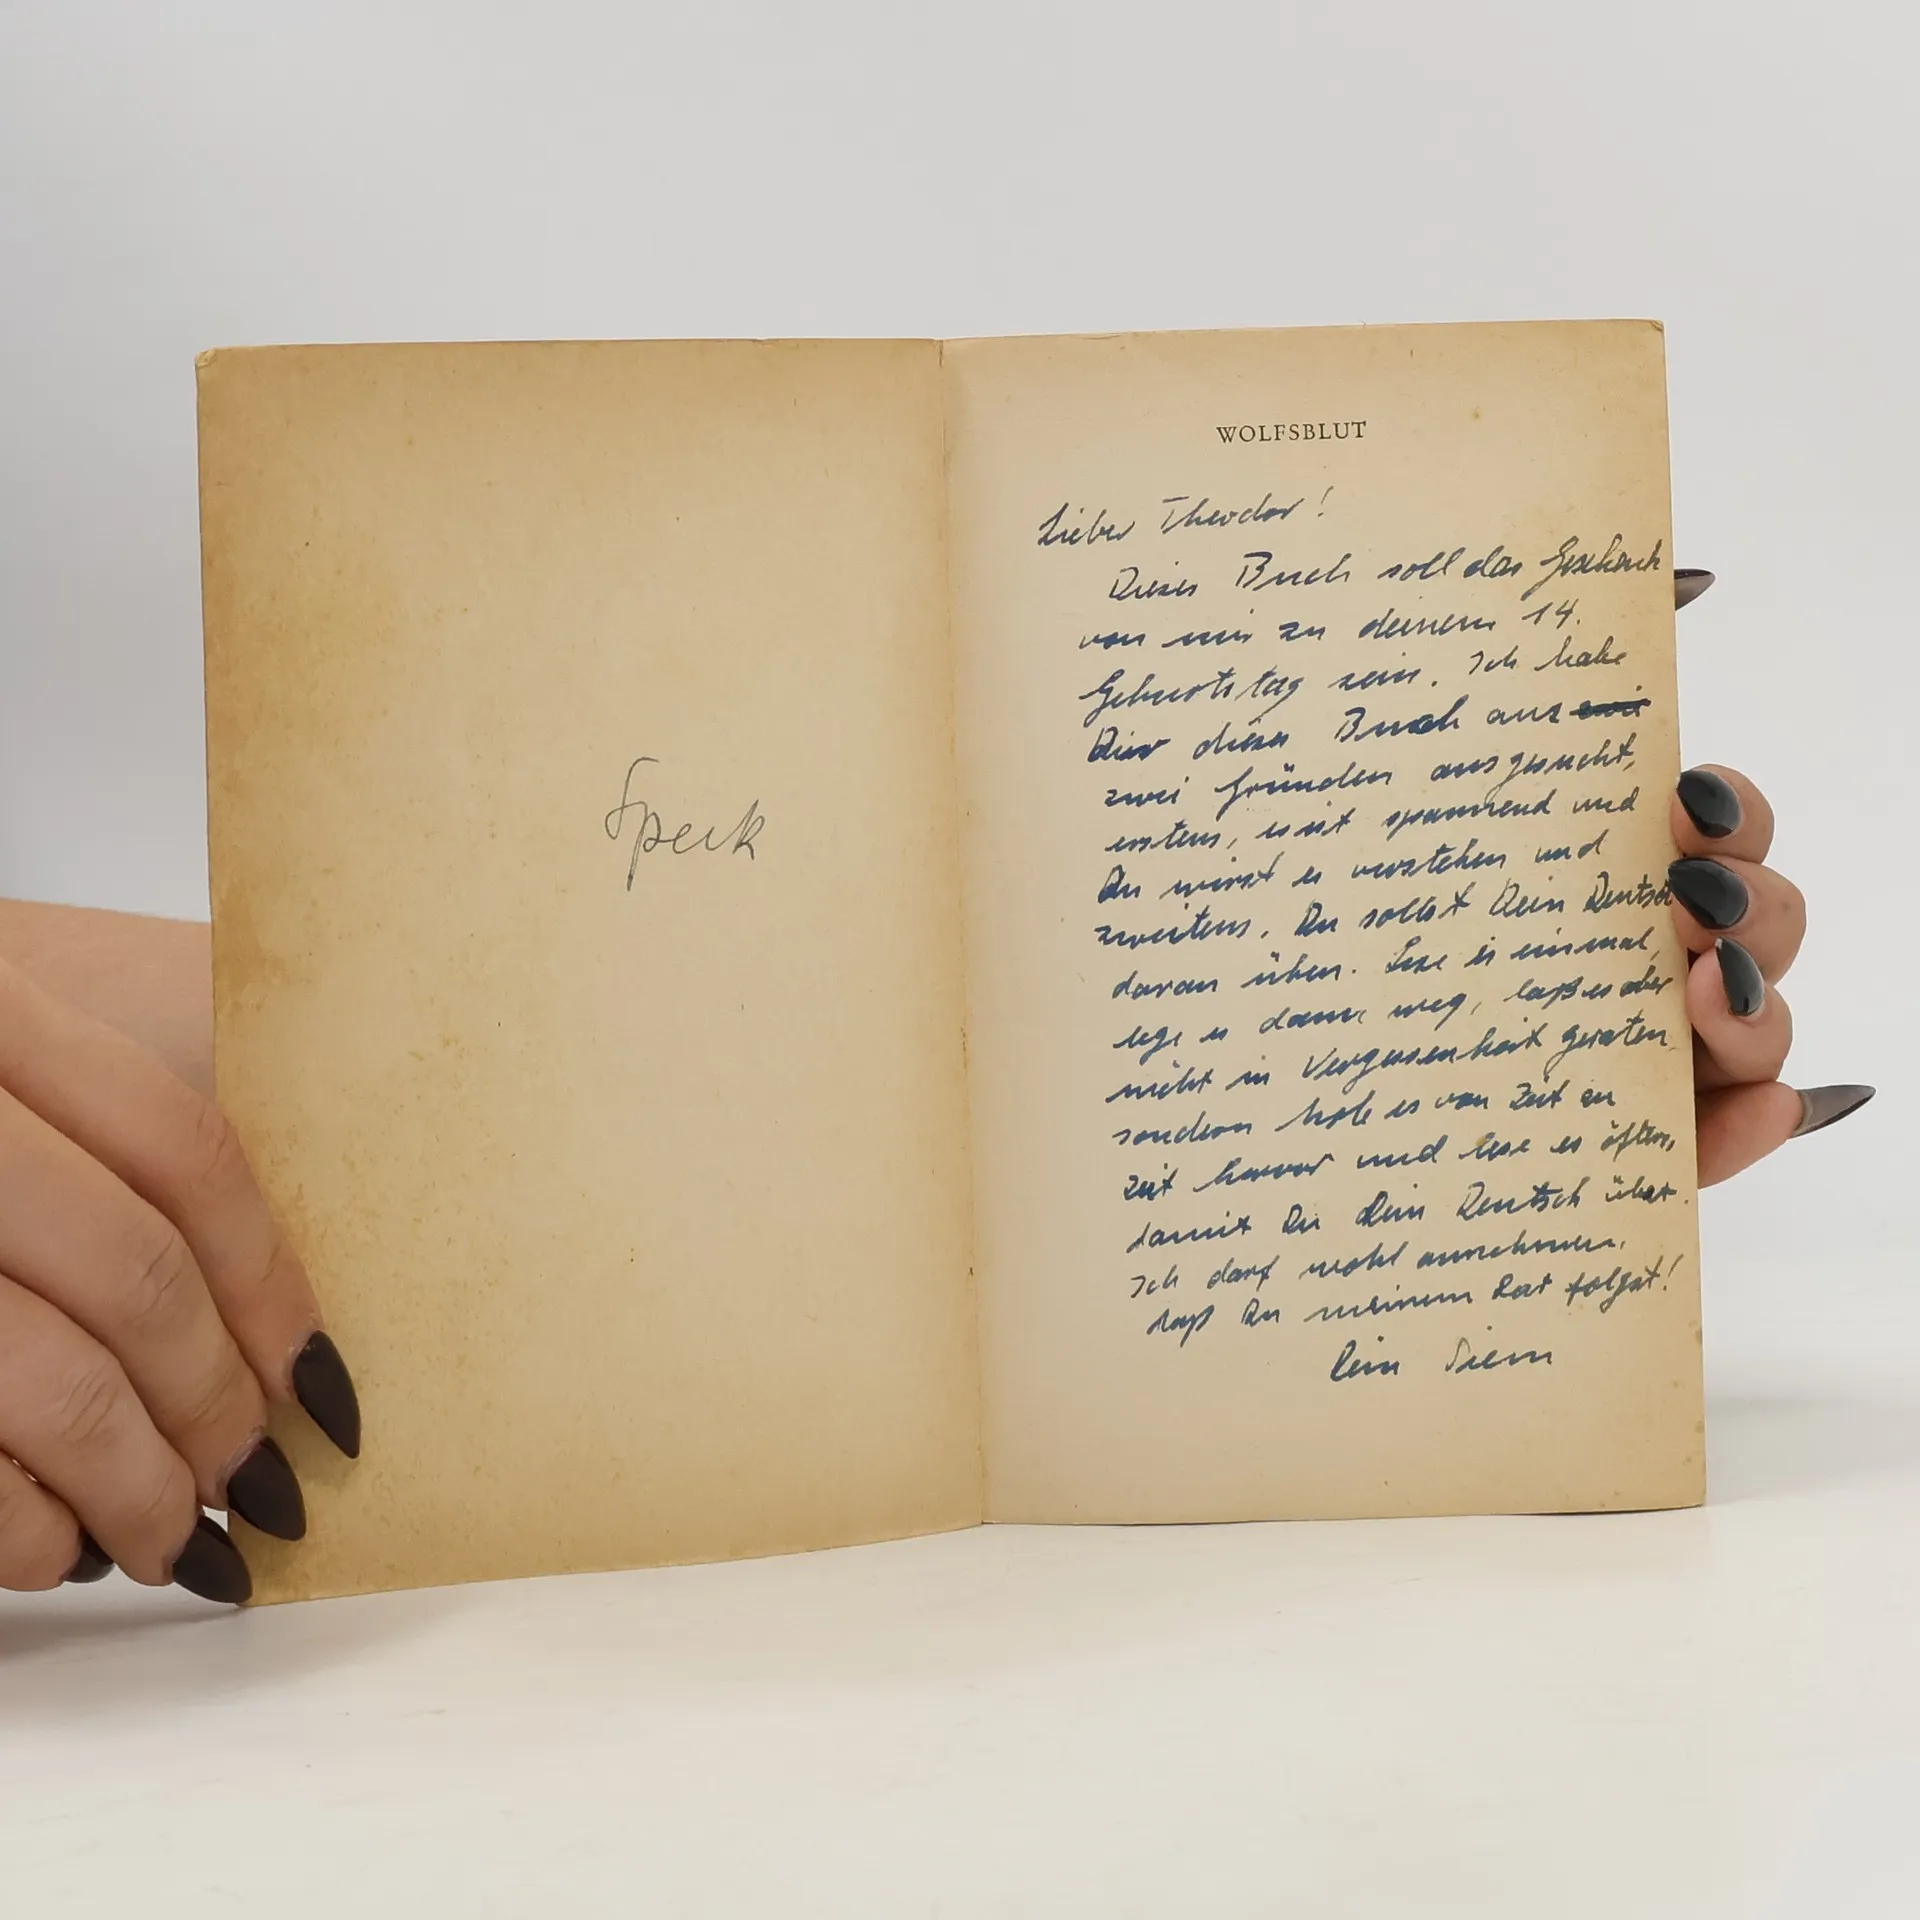 Speck
WOLFSBLUT
Lieber Theodor!
Dieses Buch soll das Geschenk
von mir zu deinem 14.
Geburtstag sein. Ich habe
Dir dieses Buch aus
zwei Gründen ausgesucht,
erstens, es ist spannend und
Du wirst es verstehen und
zweitens, Du sollst Dein Deutsch
daran üben. Lese es einmal,
lege es dann weg, laß es aber
nicht in Vergessenheit geraten,
sondern hole es von Zeit zu
Zeit hervor und lese es öfters,
damit Du Dein Deutsch übst.
Ich darf wohl annehmen,
daß Du meinem Rat folgst!
Dein